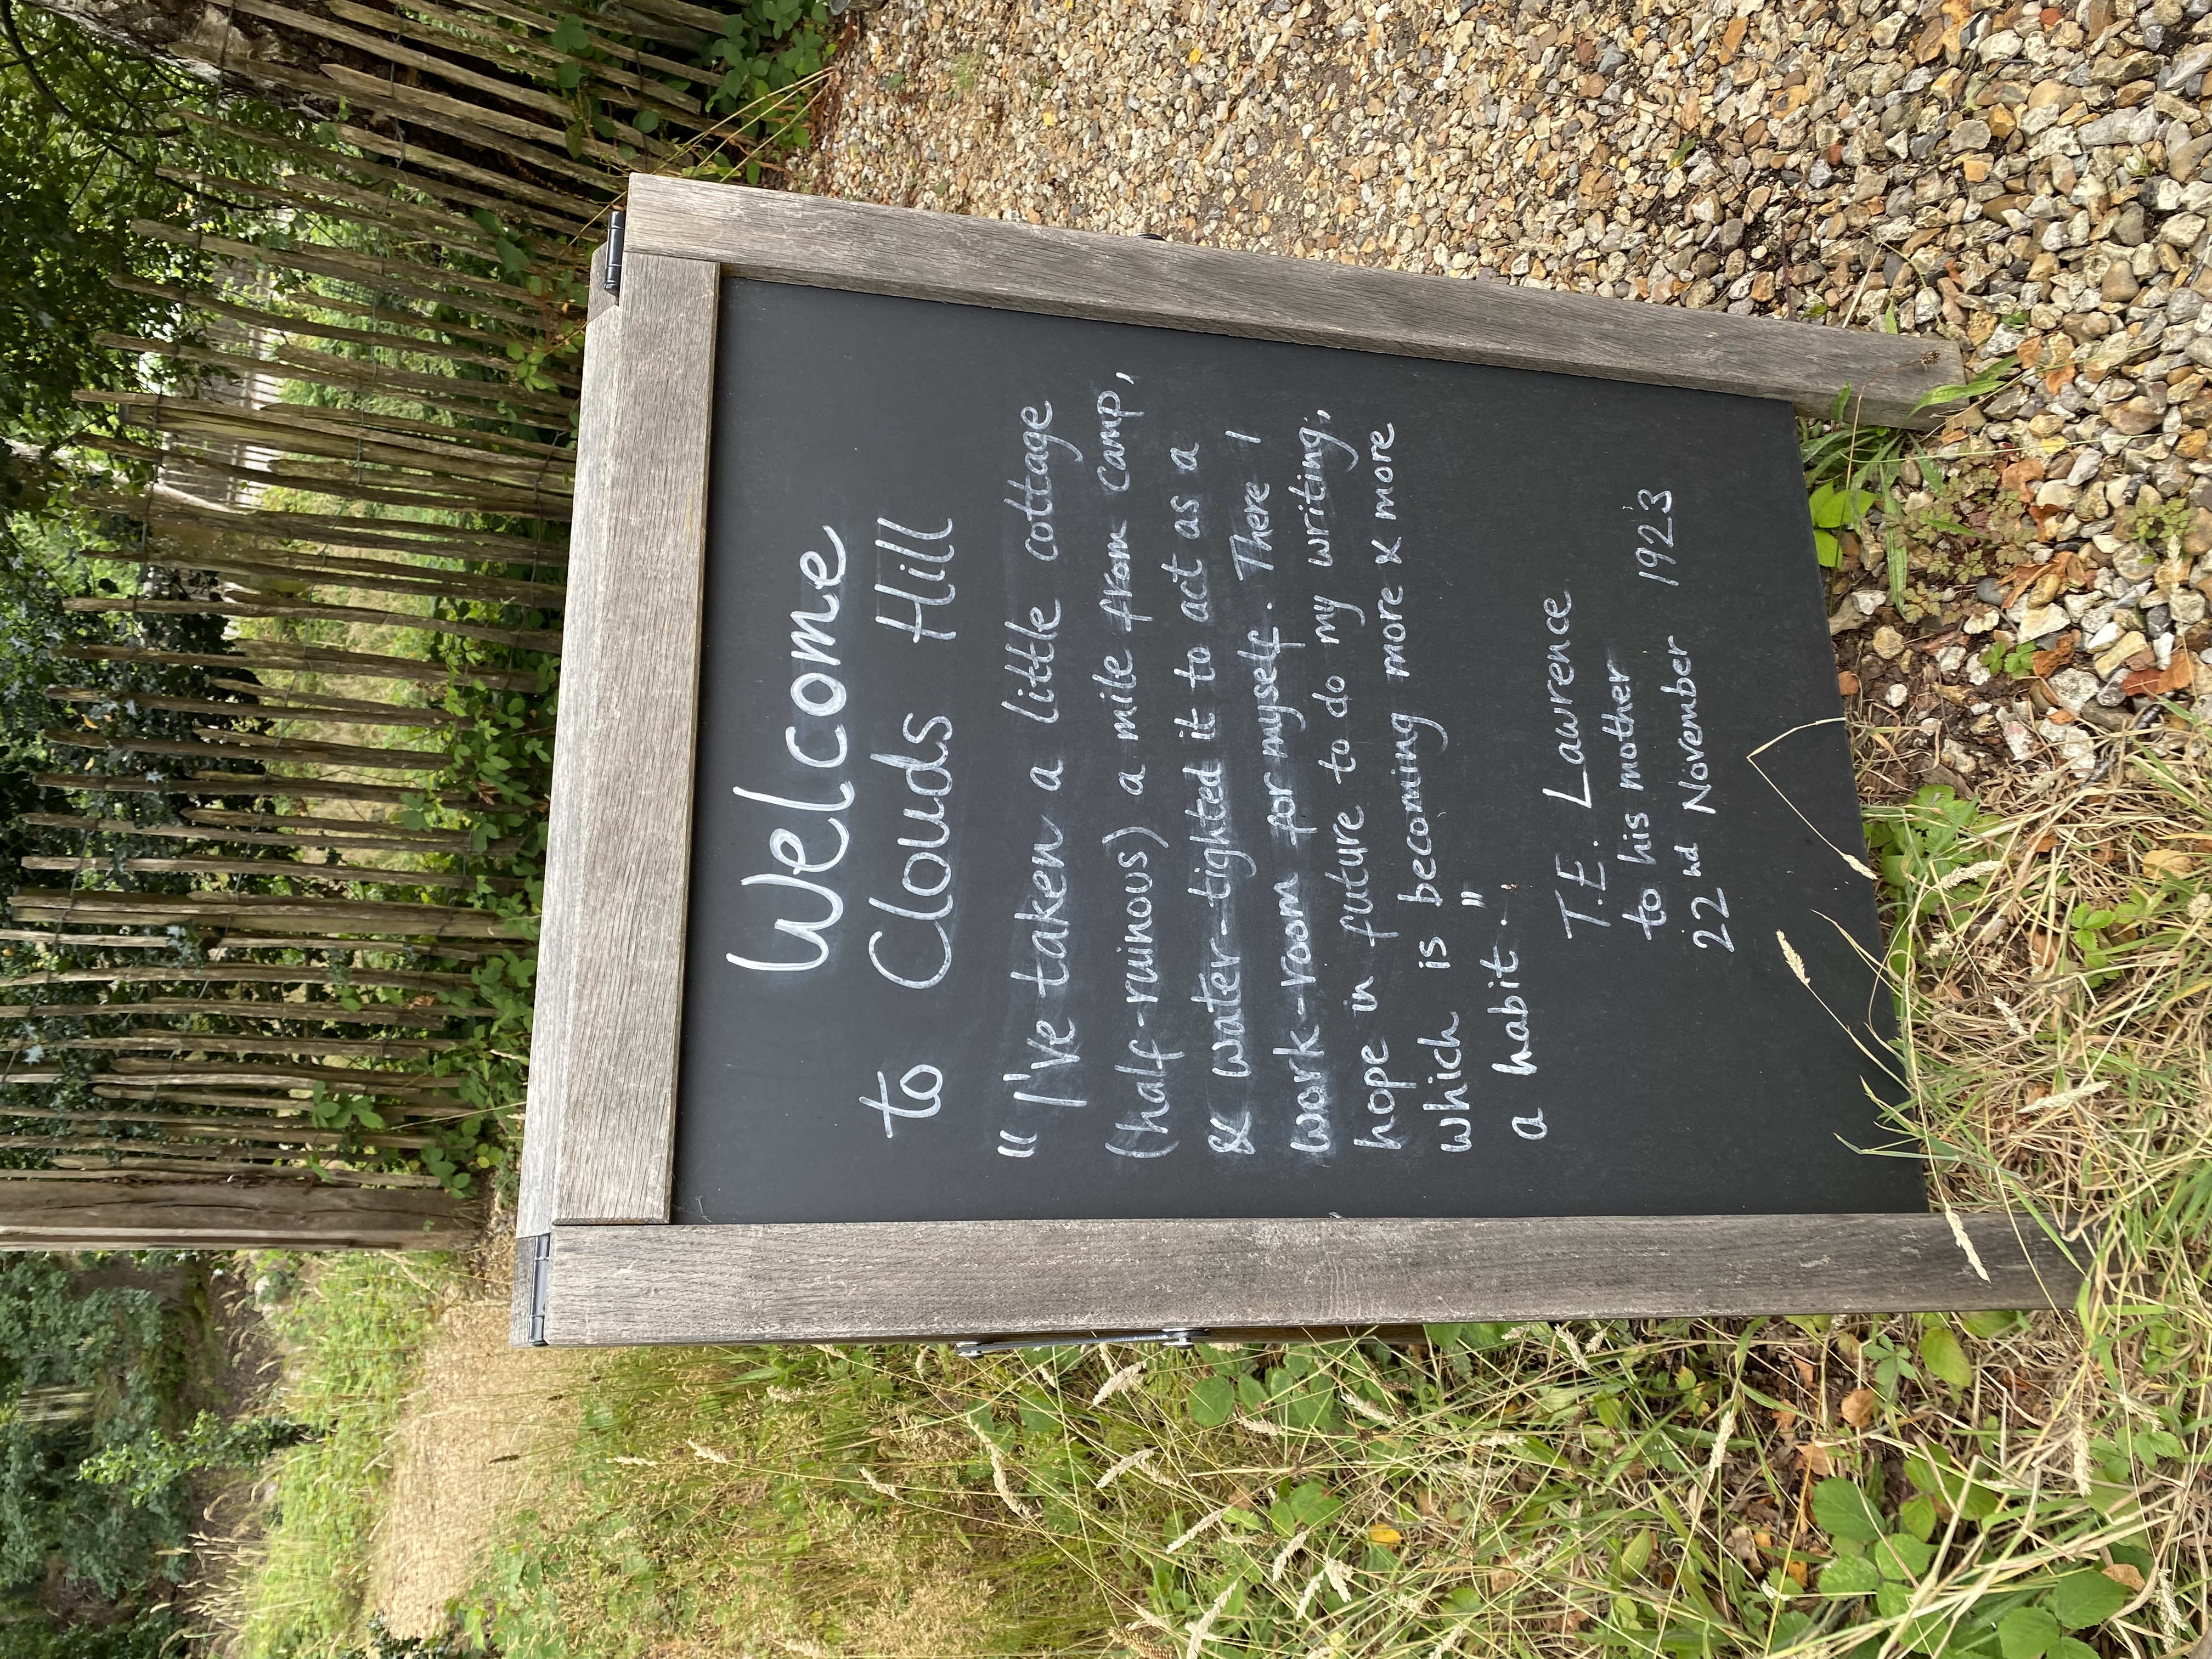 Welcome
to Clouds Hill
"I've taken a little cottage
(half-ruinous) a mile from camp,
& water-tighted it to act as a
work-room for myself. There I
hope in future to do my writing,
which is becoming more & more
a habit."
T.E. Lawrence
to his mother
22nd November 1923